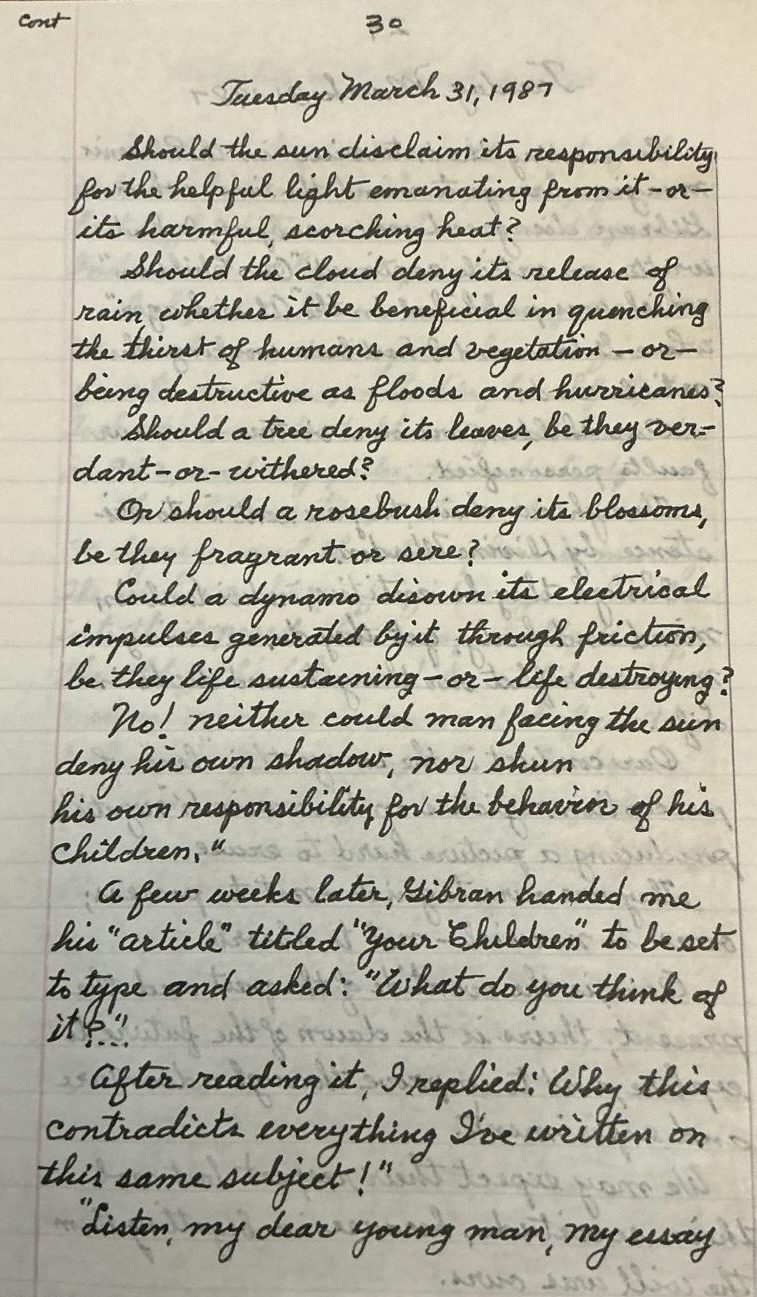 Cont
30
Tuesday March 31, 1987
Should the sun disclaim its responsibility
for the helpful light emanating from it - or -
its harmful, scorching heat?
Should the cloud deny its release of
rain, whether it be beneficial in quenching
the thirst of humans and vegetation - or -
being destructive as floods and hurricanes?
Should a tree deny its leaves, be they ver=
dant - or - withered?
Or should a rosebush deny its blossoms,
be they fragrant or sere?
Could a dynamo disown its electrical
impulses generated by it through friction,
be they life sustaining - or - life destroying?
No! neither could man facing the sun
deny his own shadow, nor shun
his own responsibility for the behavior of his
children."
A few weeks later, Gibran handed me
his "article" titled "Your Children" to be set
to type and asked: "What do you think of
it?"
After reading it, I replied: Why this
contradicts everything I've written on
this same subject!"
"Listen, my dear young man, my essay